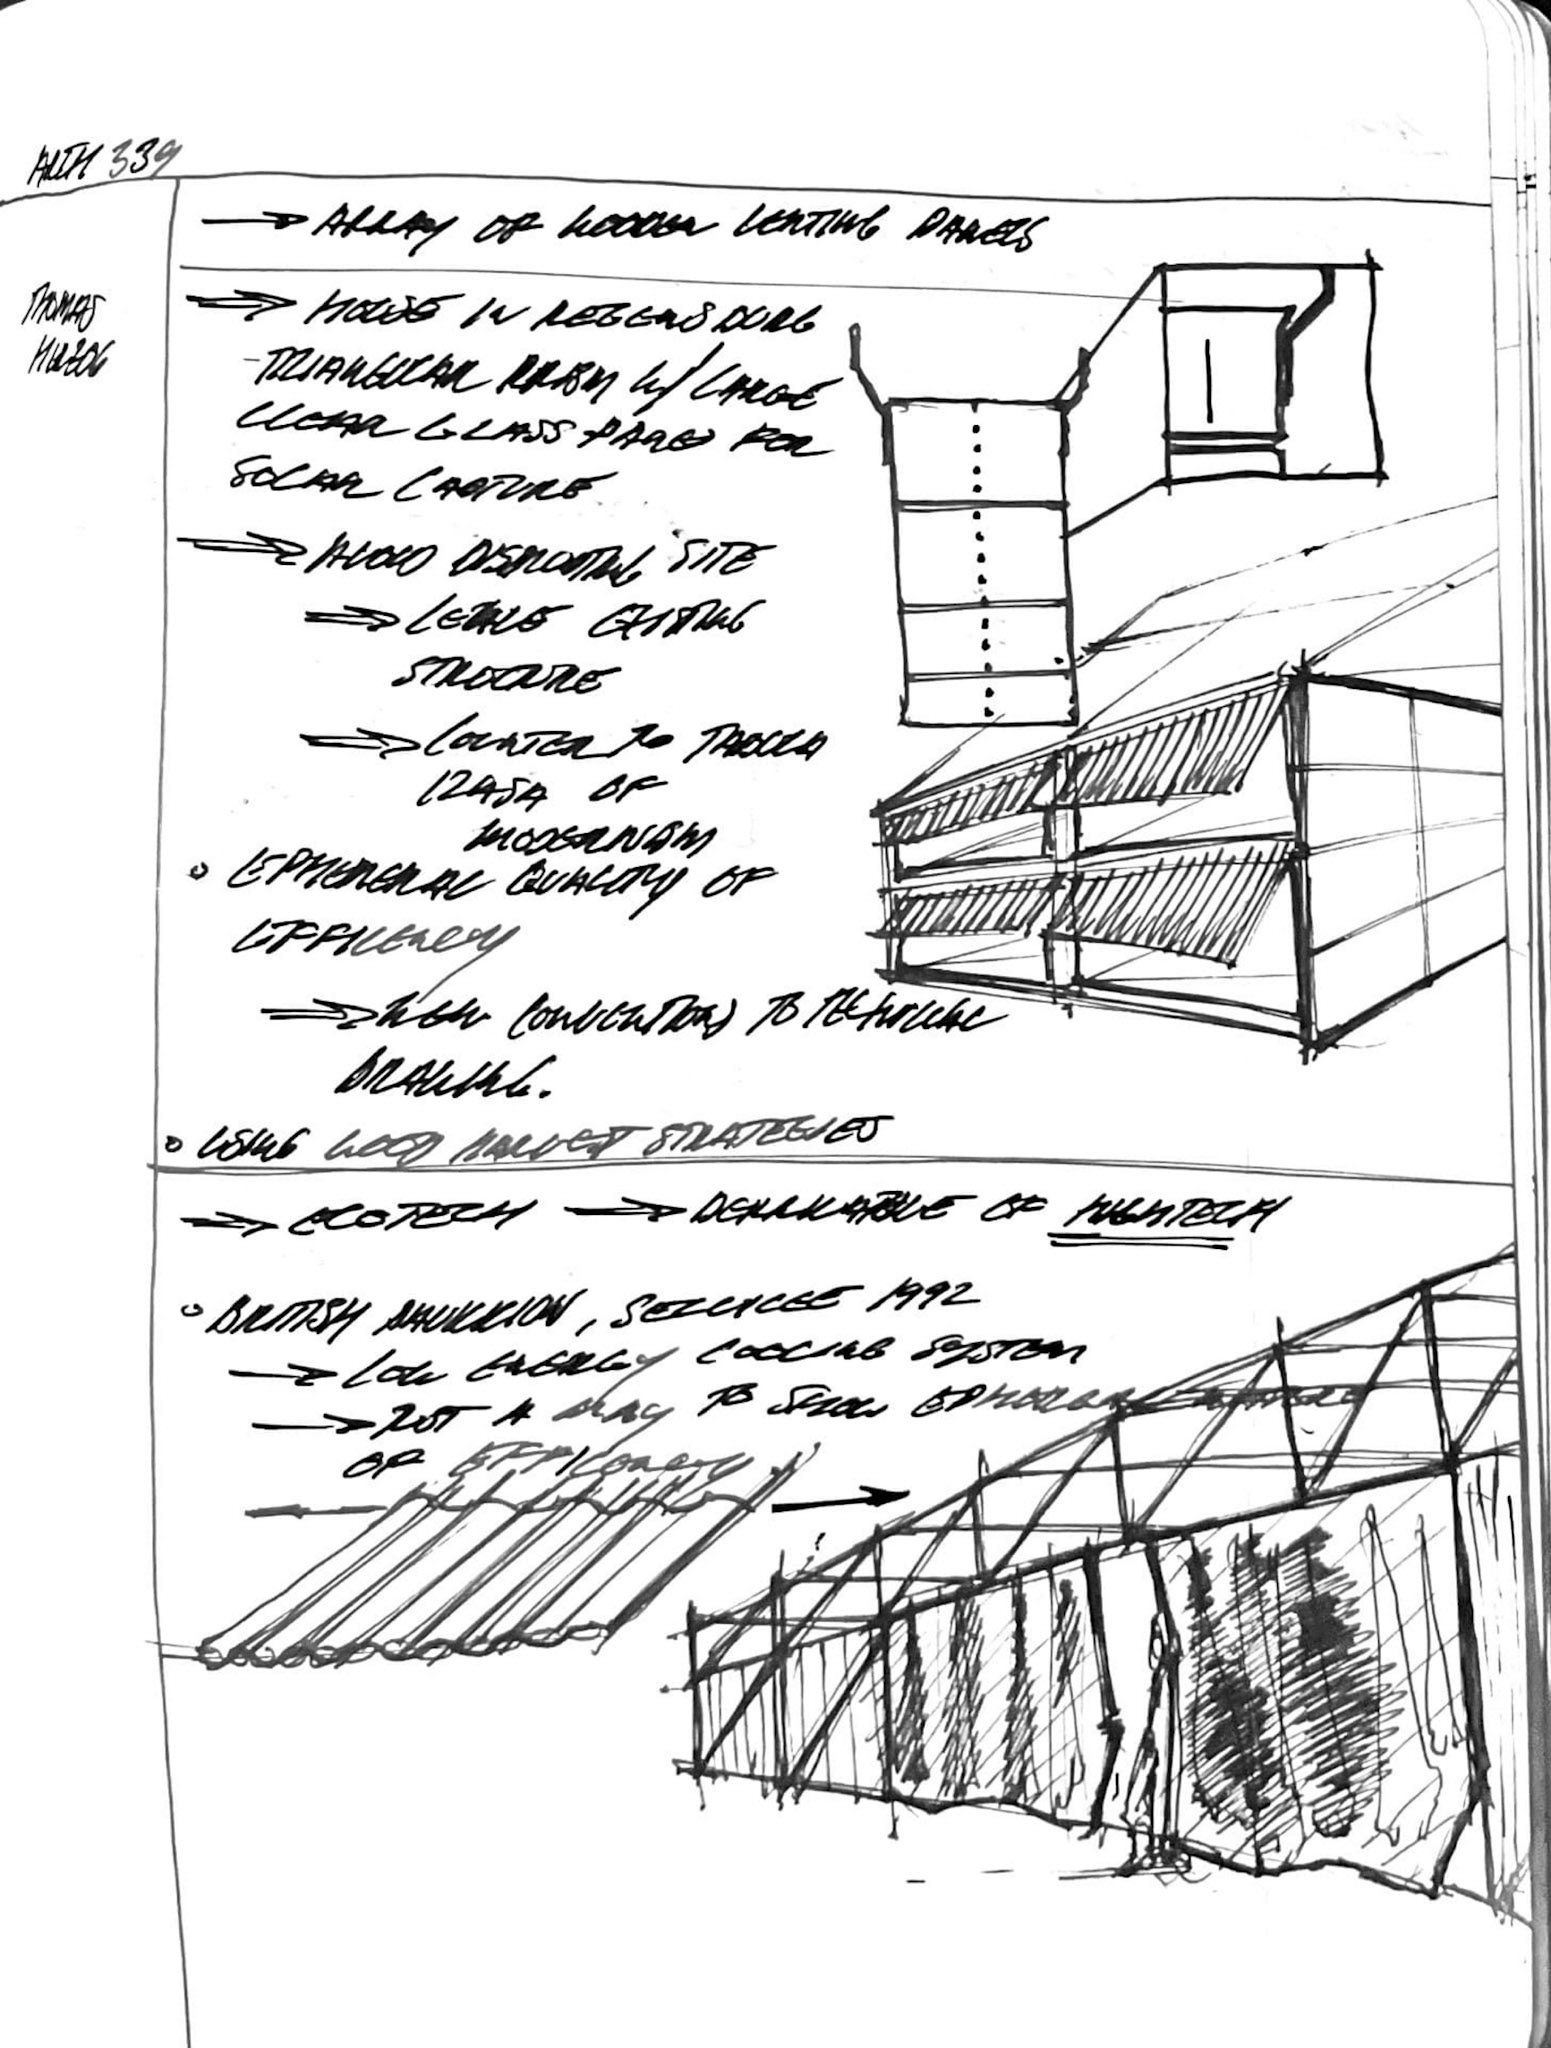 ARTH 339
→ ARRAY OF WOODEN VENTING PANELS
THOMAS
HERZOG
⇒ HOUSE IN REGENSBURG
- TRIANGULAR PRISM W/ LARGE
CLEAR GLASS PANES FOR
SOLAR CAPTURE
⇒ AVOID DISRUPTING SITE
⇒ LEAVE EXISTING
STRUCTURE
⇒ COUNTER TO TABULA
RASA OF
MODERNISM
○ EPHEMERAL QUALITY OF
EFFICIENCY
⇒ NEW CONVENTIONS TO TECHNICAL
DRAWING.
○ USING WOOD HARVEST STRATEGIES
⇒ ECOTECH ⇒ DERIVATIVE OF HIGHTECH
○ BRITISH PAVILION, SEVILLE 1992
→ LOW ENERGY COOLING SYSTEM
→ NOT A WAY TO SHOW EPHEMERAL NATURE
OF EFFICIENCY